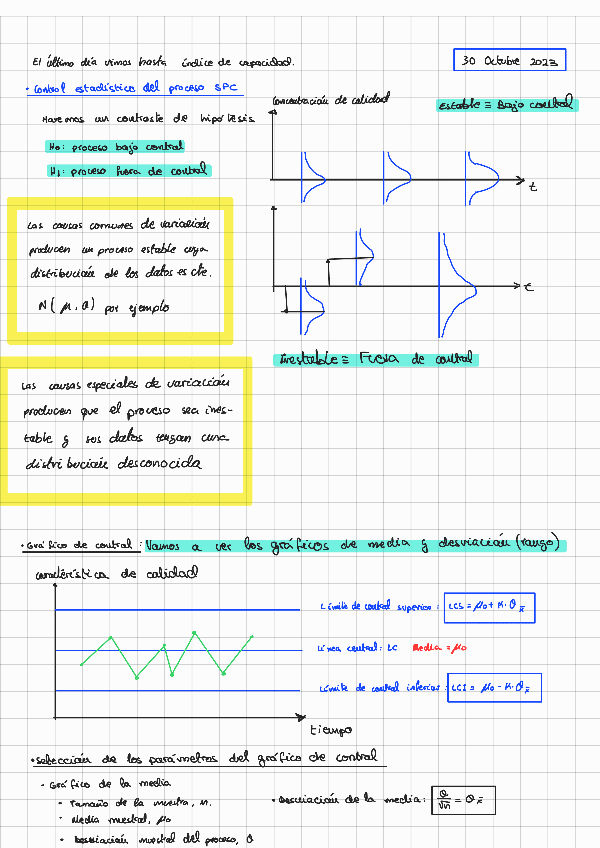 El último día vimos hasta índice de capacidad.
30 Octubre 2023
• Control estadístico del proceso SPC
Haremos un contraste de hipótesis
H₀: proceso bajo control
H₁: proceso fuera de control
Característica de calidad
Estable ≡ Bajo control
t
Las causas comunes de variación
producen un proceso estable cuya
distribución de los datos es cte.
N(μ, σ) por ejemplo
t
Inestable ≡ Fuera de control
Las causas especiales de variación
producen que el proceso sea ines-
table y sus datos tengan una
distribución desconocida
• Gráfico de control: Vamos a ver los gráficos de media y desviación (rango)
característica de calidad
Límite de control superior: LCS = μ₀ + K·σx̄
Línea central: LC Media = μ₀
Límite de control inferior: LCI = μ₀ - K·σx̄
tiempo
• Selección de los parámetros del gráfico de control
• Gráfico de la media
- Tamaño de la muestra, n.
- Media muestral, μ₀
- Desviación muestral del proceso, σ
• Desviación de la media: σ/√n = σx̄